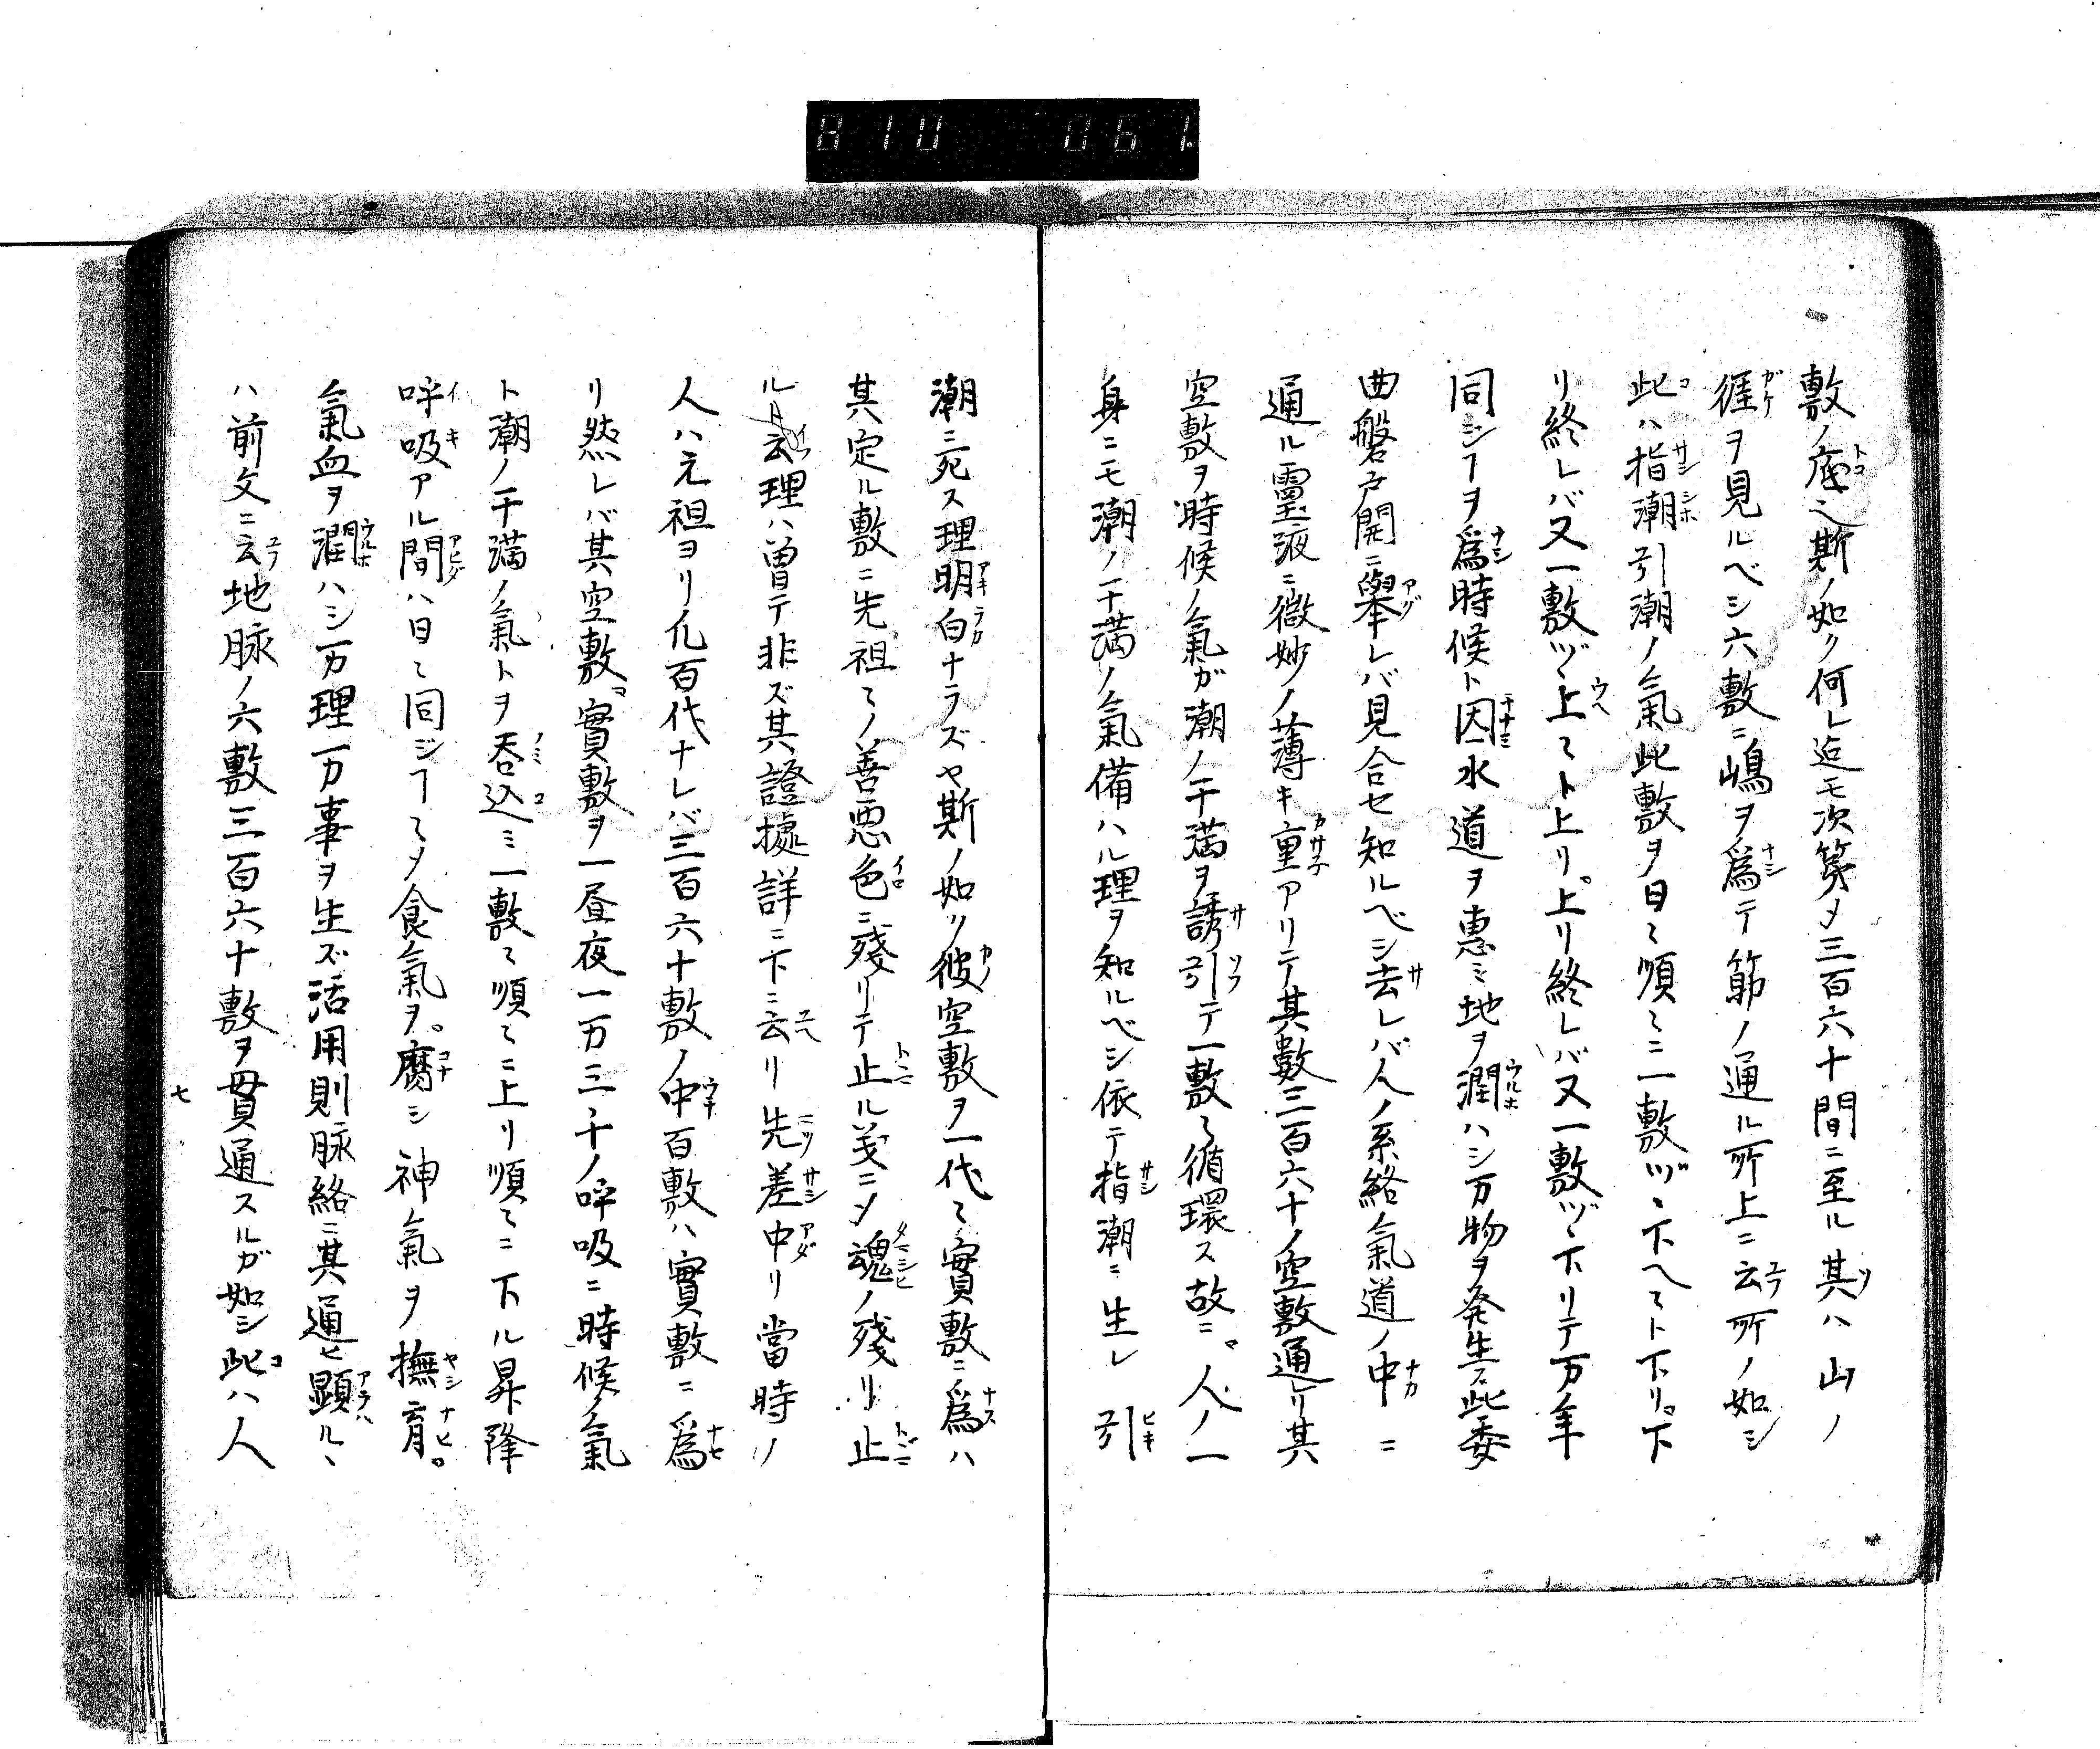 810 061
敷ノ底之斯ノ如ク何レ迄モ次第〆三百六十間ニ至ル其ハ山ノ
徃ヲ見ルベシ六敷ニ嶋ヲ爲テ節ノ通ル所上ニ云所ノ如シ
此ハ指潮引潮ノ氣此敷ヲ日〻順〻ニ一敷ヅヽ下ヘ〻ト下リ下
リ終レバ又一敷ヅヽ上〻ト上リ上リ終レバ又一敷ヅヽ下リテ万年
同シヿヲ爲時候ト因水道ヲ惠ミ地ヲ潤ハシ万物ヲ発生ス此委
曲磐戸開ニ擧レバ見合セ知ルベシ去レバ人ノ系絡氣道ノ中ニ
通ル靈液ニ微妙ノ薄キ重アリテ其數三百六十ノ空敷通リ其
空敷ヲ時候ノ氣ガ潮ノ干満ヲ誘引テ一敷〻循環ス故ニ人ノ一
身ニモ潮ノ干満ノ氣備ハル理ヲ知ルベシ依テ指潮ニ生レ引
潮ニ死ス理明白ナラズヤ斯ノ如ク彼空敷ヲ一代〻實敷ニ爲ハ
其定ル敷ニ先祖〻ノ善悪色ニ殘リテ止ル義ニ〆魂ノ残リ止
ル云理ハ曽テ非ズ其證據詳ニ下ニ云リ先差中リ當時ノ
人ハ元祖ヨリ凢百代ナレバ三百六十敷ノ中百敷ハ實敷ニ爲
リ然レバ其空敷實敷ヲ一昼夜一万三千ノ呼吸ニ時候ノ氣
ト潮ノ干満ノ氣トヲ呑込ミ一敷〻順〻ニ上リ順〻ニ下ル昇降
呼吸アル間ハ日〻同ジヿ〻〆食氣ヲ腐シ神氣ヲ撫育
氣血ヲ潤ハシ万理万事ヲ生ズ活用則脉絡ニ其通ヒ顕ルヽ
ハ前文ニ云地脉ノ六敷三百六十敷ヲ貫通スルガ如シ此ハ人
七